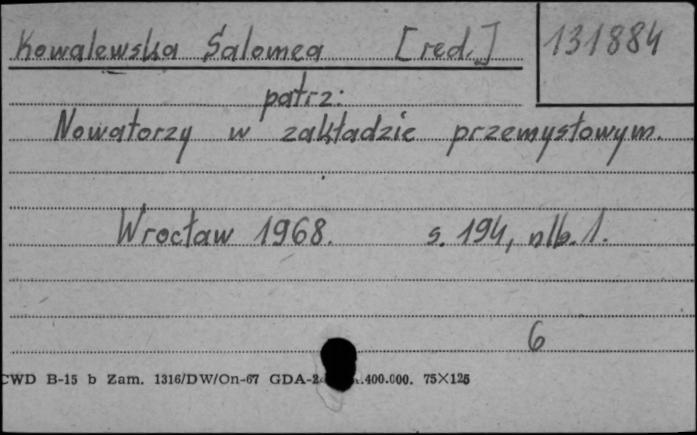 Kowalewska Salomea [red.] 131884
patrz:
Nowatorzy w zakładzie przemysłowym.
Wrocław 1968. s. 194, nlb. 1.
6
CWD B-15 b Zam. 1316/DW/On-67 GDA-2 .400.000. 75×125